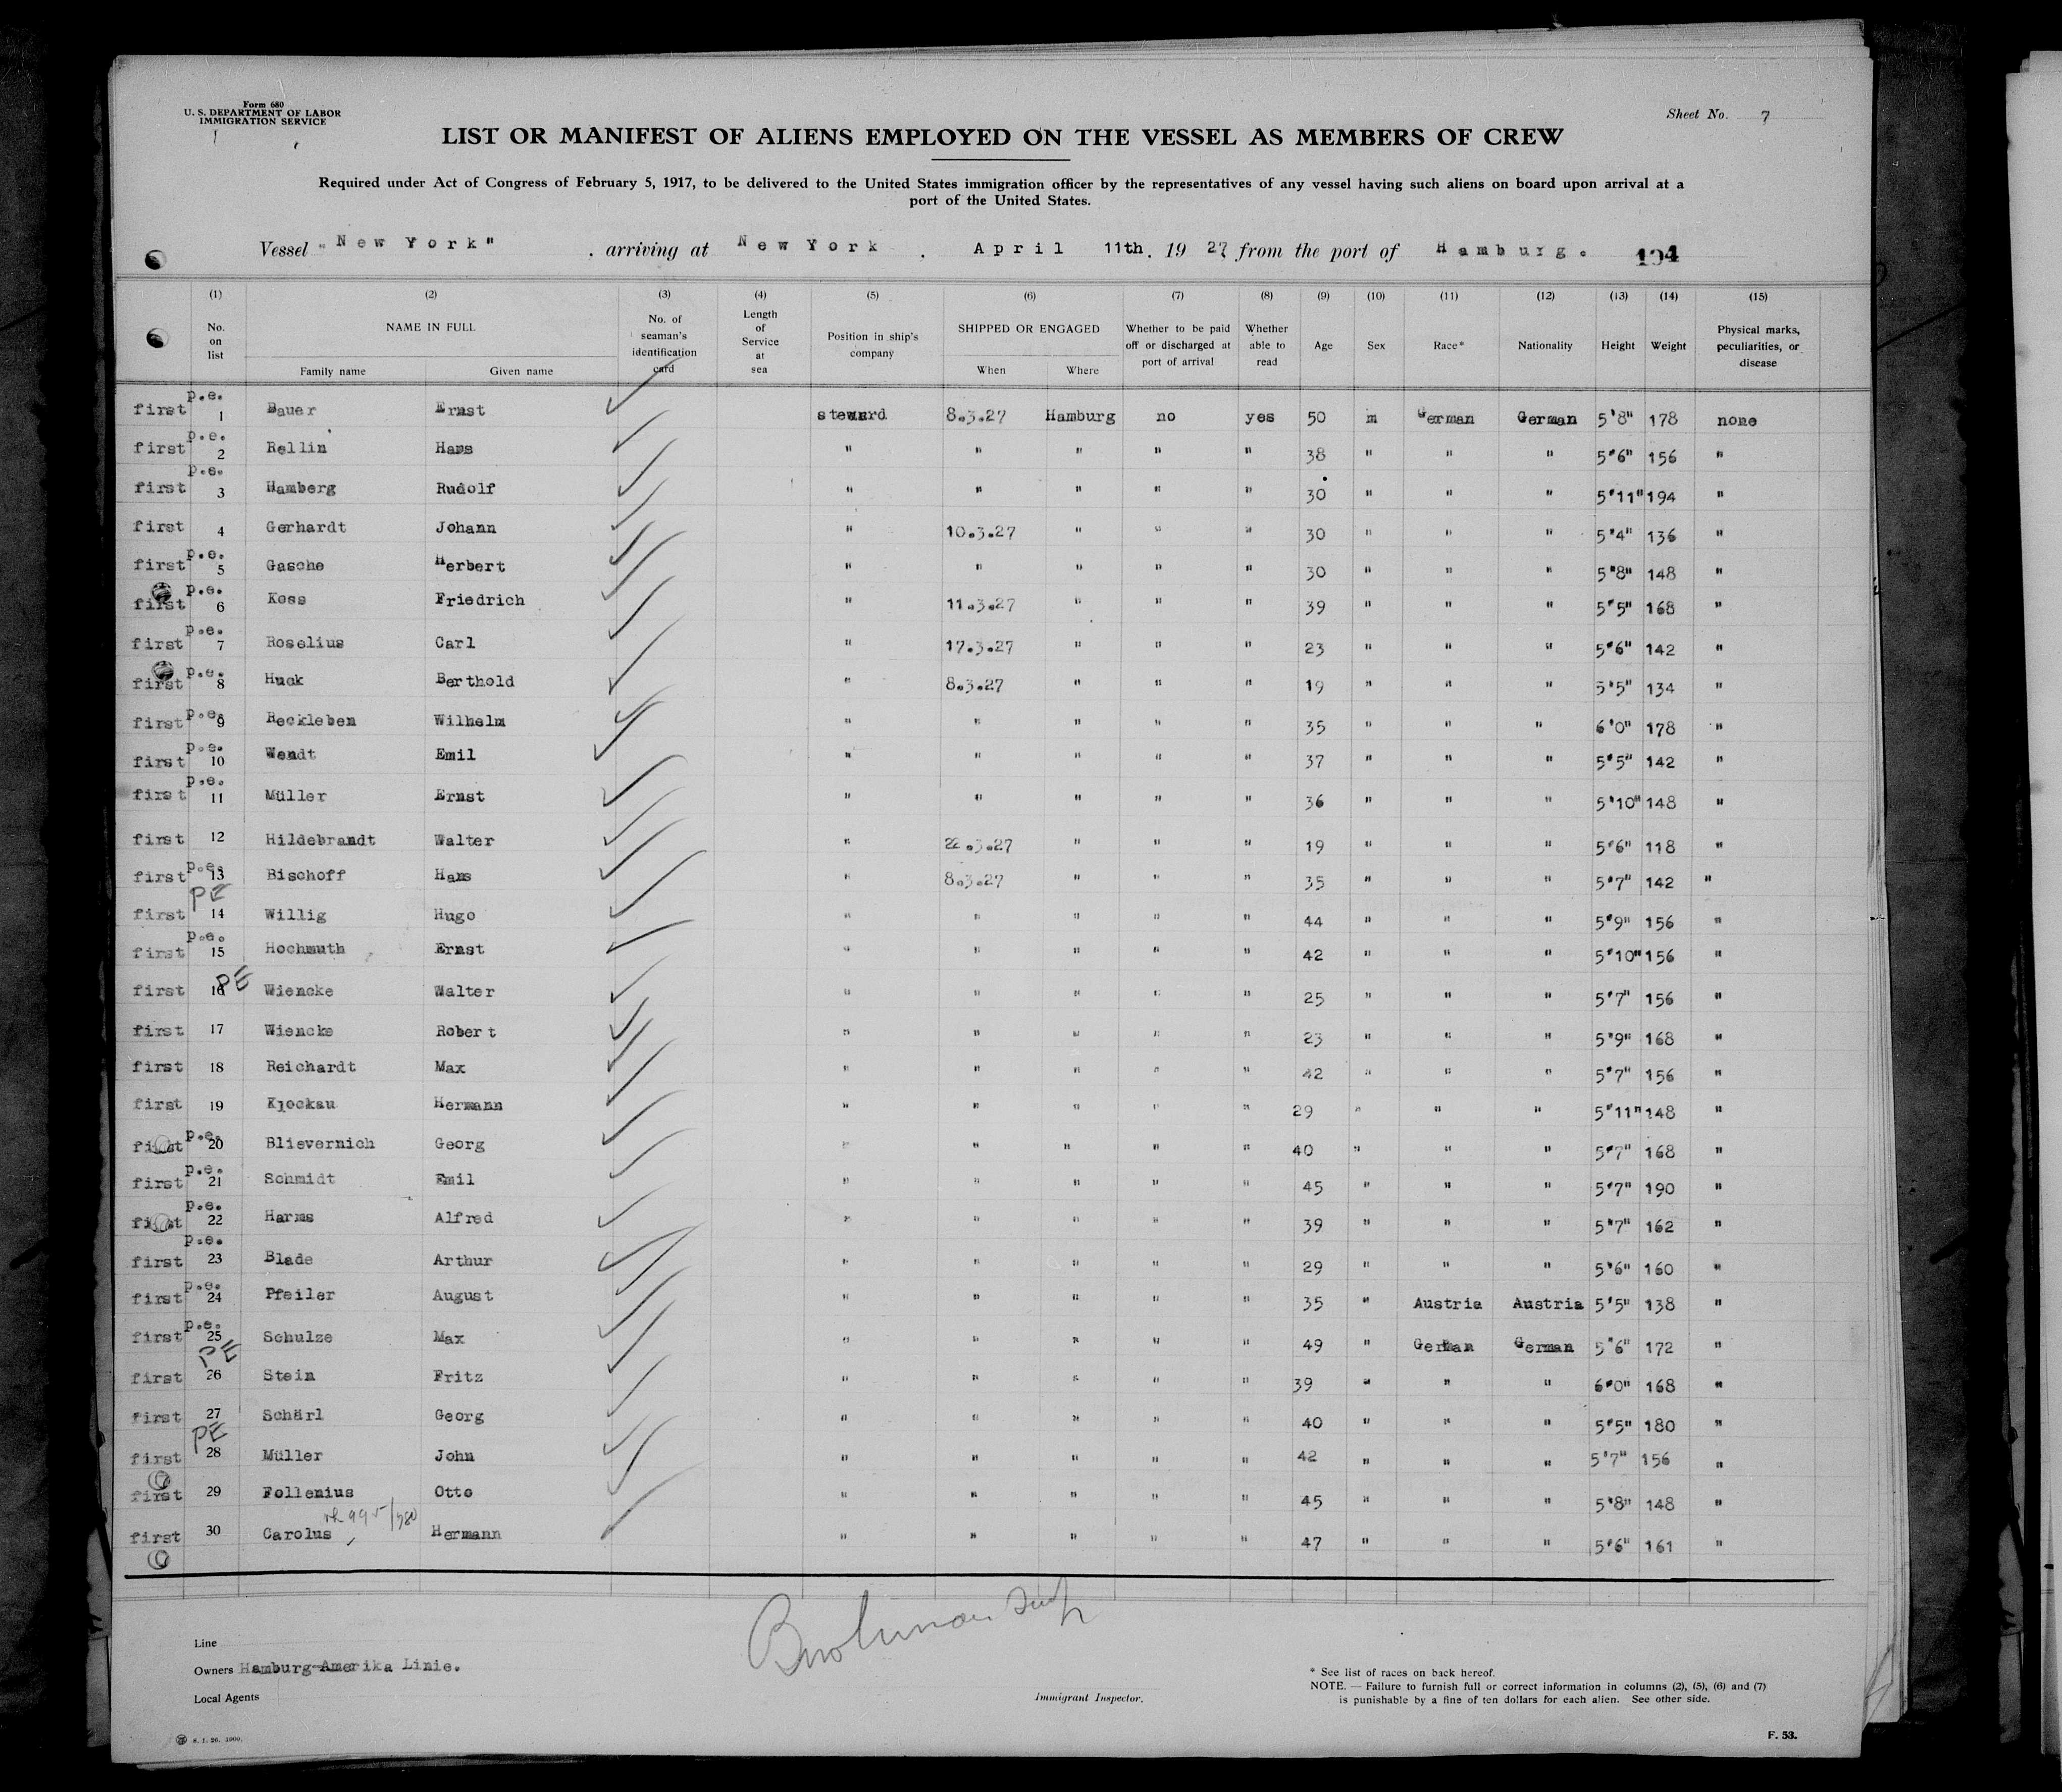 Form 680
U. S. DEPARTMENT OF LABOR
IMMIGRATION SERVICE
Sheet No. 7
LIST OR MANIFEST OF ALIENS EMPLOYED ON THE VESSEL AS MEMBERS OF CREW
Required under Act of Congress of February 5, 1917, to be delivered to the United States immigration officer by the representatives of any vessel having such aliens on board upon arrival at a
port of the United States.
Vessel "New York", arriving at New York, April 11th, 1927 from the port of Hamburg. 104
(1) (2) (3) (4) (5) (6) (7) (8) (9) (10) (11) (12) (13) (14) (15)
No. on list NAME IN FULL Family name Given name No. of seaman's identification card Length of Service at sea Position in ship's company SHIPPED OR ENGAGED When Where Whether to be paid off or discharged at port of arrival Whether able to read Age Sex Race* Nationality Height Weight Physical marks, peculiarities, or disease
first p.e. 1 Bauer Ernst steward 8.3.27 Hamburg no yes 50 m German German 5'8" 178 none
first p.e. 2 Rellin Hans " " " " " 38 " " " 5'6" 156 "
first p.e. 3 Hamberg Rudolf " " " " " 30 " " " 5'11" 194 "
first 4 Gerhardt Johann " 10.3.27 " " " 30 " " " 5'4" 136 "
first p.e. 5 Gasche Herbert " " " " " 30 " " " 5'8" 148 "
first p.e. 6 Koss Friedrich " 11.3.27 " " " 39 " " " 5'5" 168 "
first p.e. 7 Roselius Carl " 17.3.27 " " " 23 " " " 5'6" 142 "
first p.e. 8 Huck Berthold " 8.3.27 " " " 19 " " " 5'5" 134 "
first p.e. 9 Reckleben Wilhelm " " " " " 35 " " " 6'0" 178 "
first p.e. 10 Wendt Emil " " " " " 37 " " " 5'5" 142 "
first p.e. 11 Müller Ernst " " " " " 36 " " " 5'10" 148 "
first 12 Hildebrandt Walter " 22.3.27 " " " 19 " " " 5'6" 118 "
first p.e. 13 Bischoff Hans " 8.3.27 " " " 35 " " " 5'7" 142 "
first PE 14 Willig Hugo " " " " " 44 " " " 5'9" 156 "
first p.e. 15 Hochmuth Ernst " " " " " 42 " " " 5'10" 156 "
first 16 PE Wiencke Walter " " " " " 25 " " " 5'7" 156 "
first 17 Wiencke Robert " " " " " 23 " " " 5'9" 168 "
first 18 Reichardt Max " " " " " 42 " " " 5'7" 156 "
first 19 Klockau Hermann " " " " " 29 " " " 5'11" 148 "
first p.e. 20 Blievernich Georg " " " " " 40 " " " 5'7" 168 "
first p.e. 21 Schmidt Emil " " " " " 45 " " " 5'7" 190 "
first p.e. 22 Harms Alfred " " " " " 39 " " " 5'7" 162 "
first p.e. 23 Blade Arthur " " " " " 29 " " " 5'6" 160 "
first p.e. 24 Pfeiler August " " " " " 35 " Austria Austria 5'5" 138 "
first p.e. 25 Schulze Max " " " " " 49 " German German 5'6" 172 "
first PE 26 Stein Fritz " " " " " 39 " " " 6'0" 168 "
first 27 Schärl Georg " " " " " 40 " " " 5'5" 180 "
first PE 28 Müller John " " " " " 42 " " " 5'7" 156 "
first 29 Follenius Otto " " " " " 45 " " " 5'8" 148 "
first 30 Carolus Hermann " " " " " 47 " " " 5'6" 161 "
Line
Owners Hamburg-Amerika Linie.
Local Agents
Immigrant Inspector.
* See list of races on back hereof.
NOTE. — Failure to furnish full or correct information in columns (2), (5), (6) and (7)
is punishable by a fine of ten dollars for each alien. See other side.
F. 53.